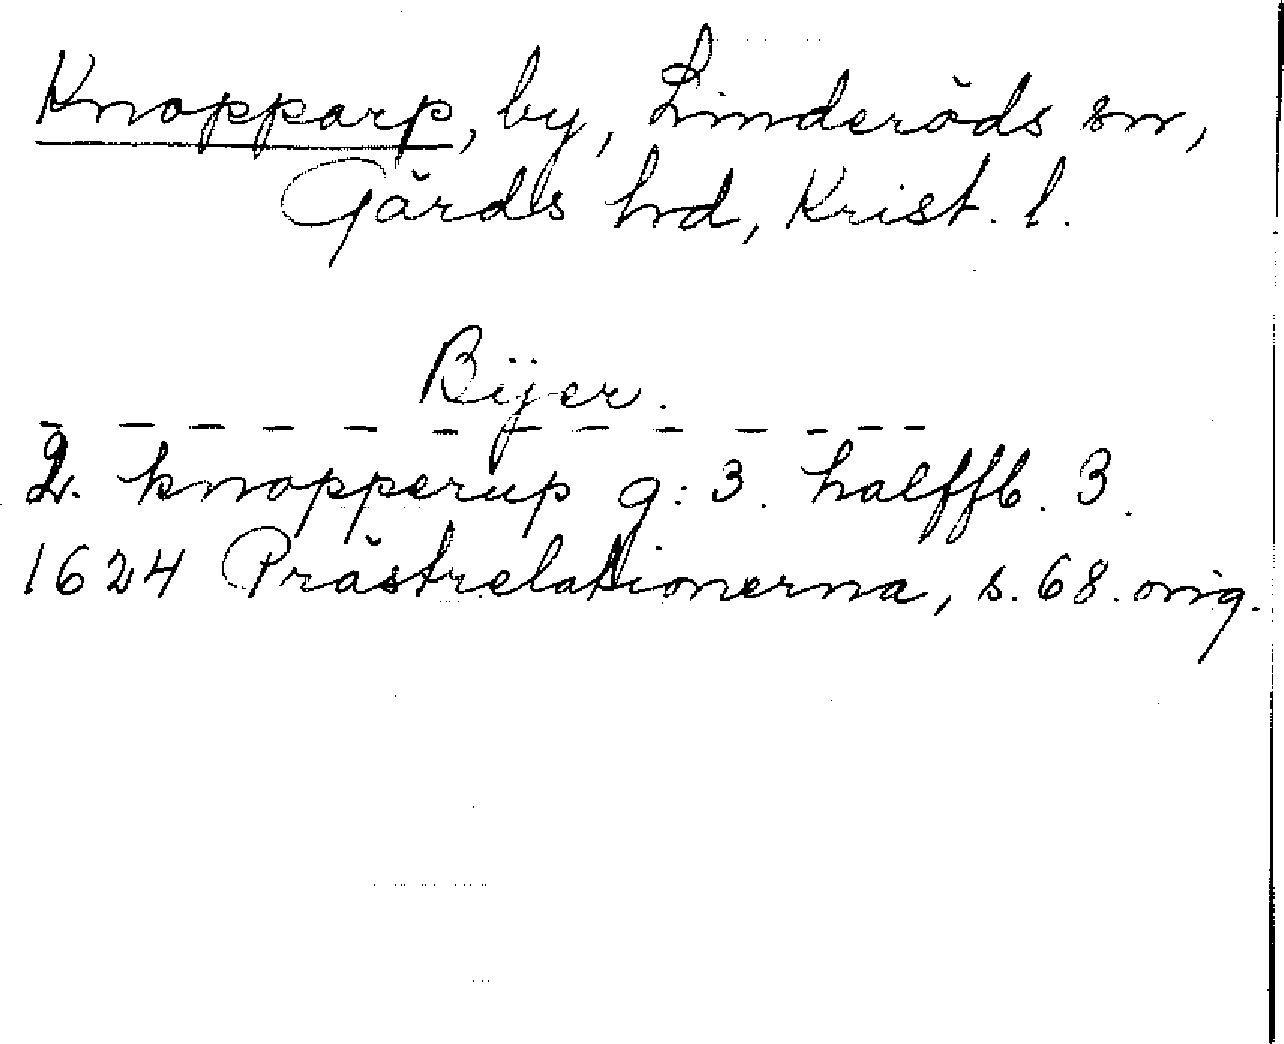 Knopparp, by, Linderöds sn,
Gärds hd, Krist. l.
Bÿer.
– – – – – – – – – – – –
2. knopperup g: 3. halffb. 3.
1624 Prästrelationerna, s. 68. orig.